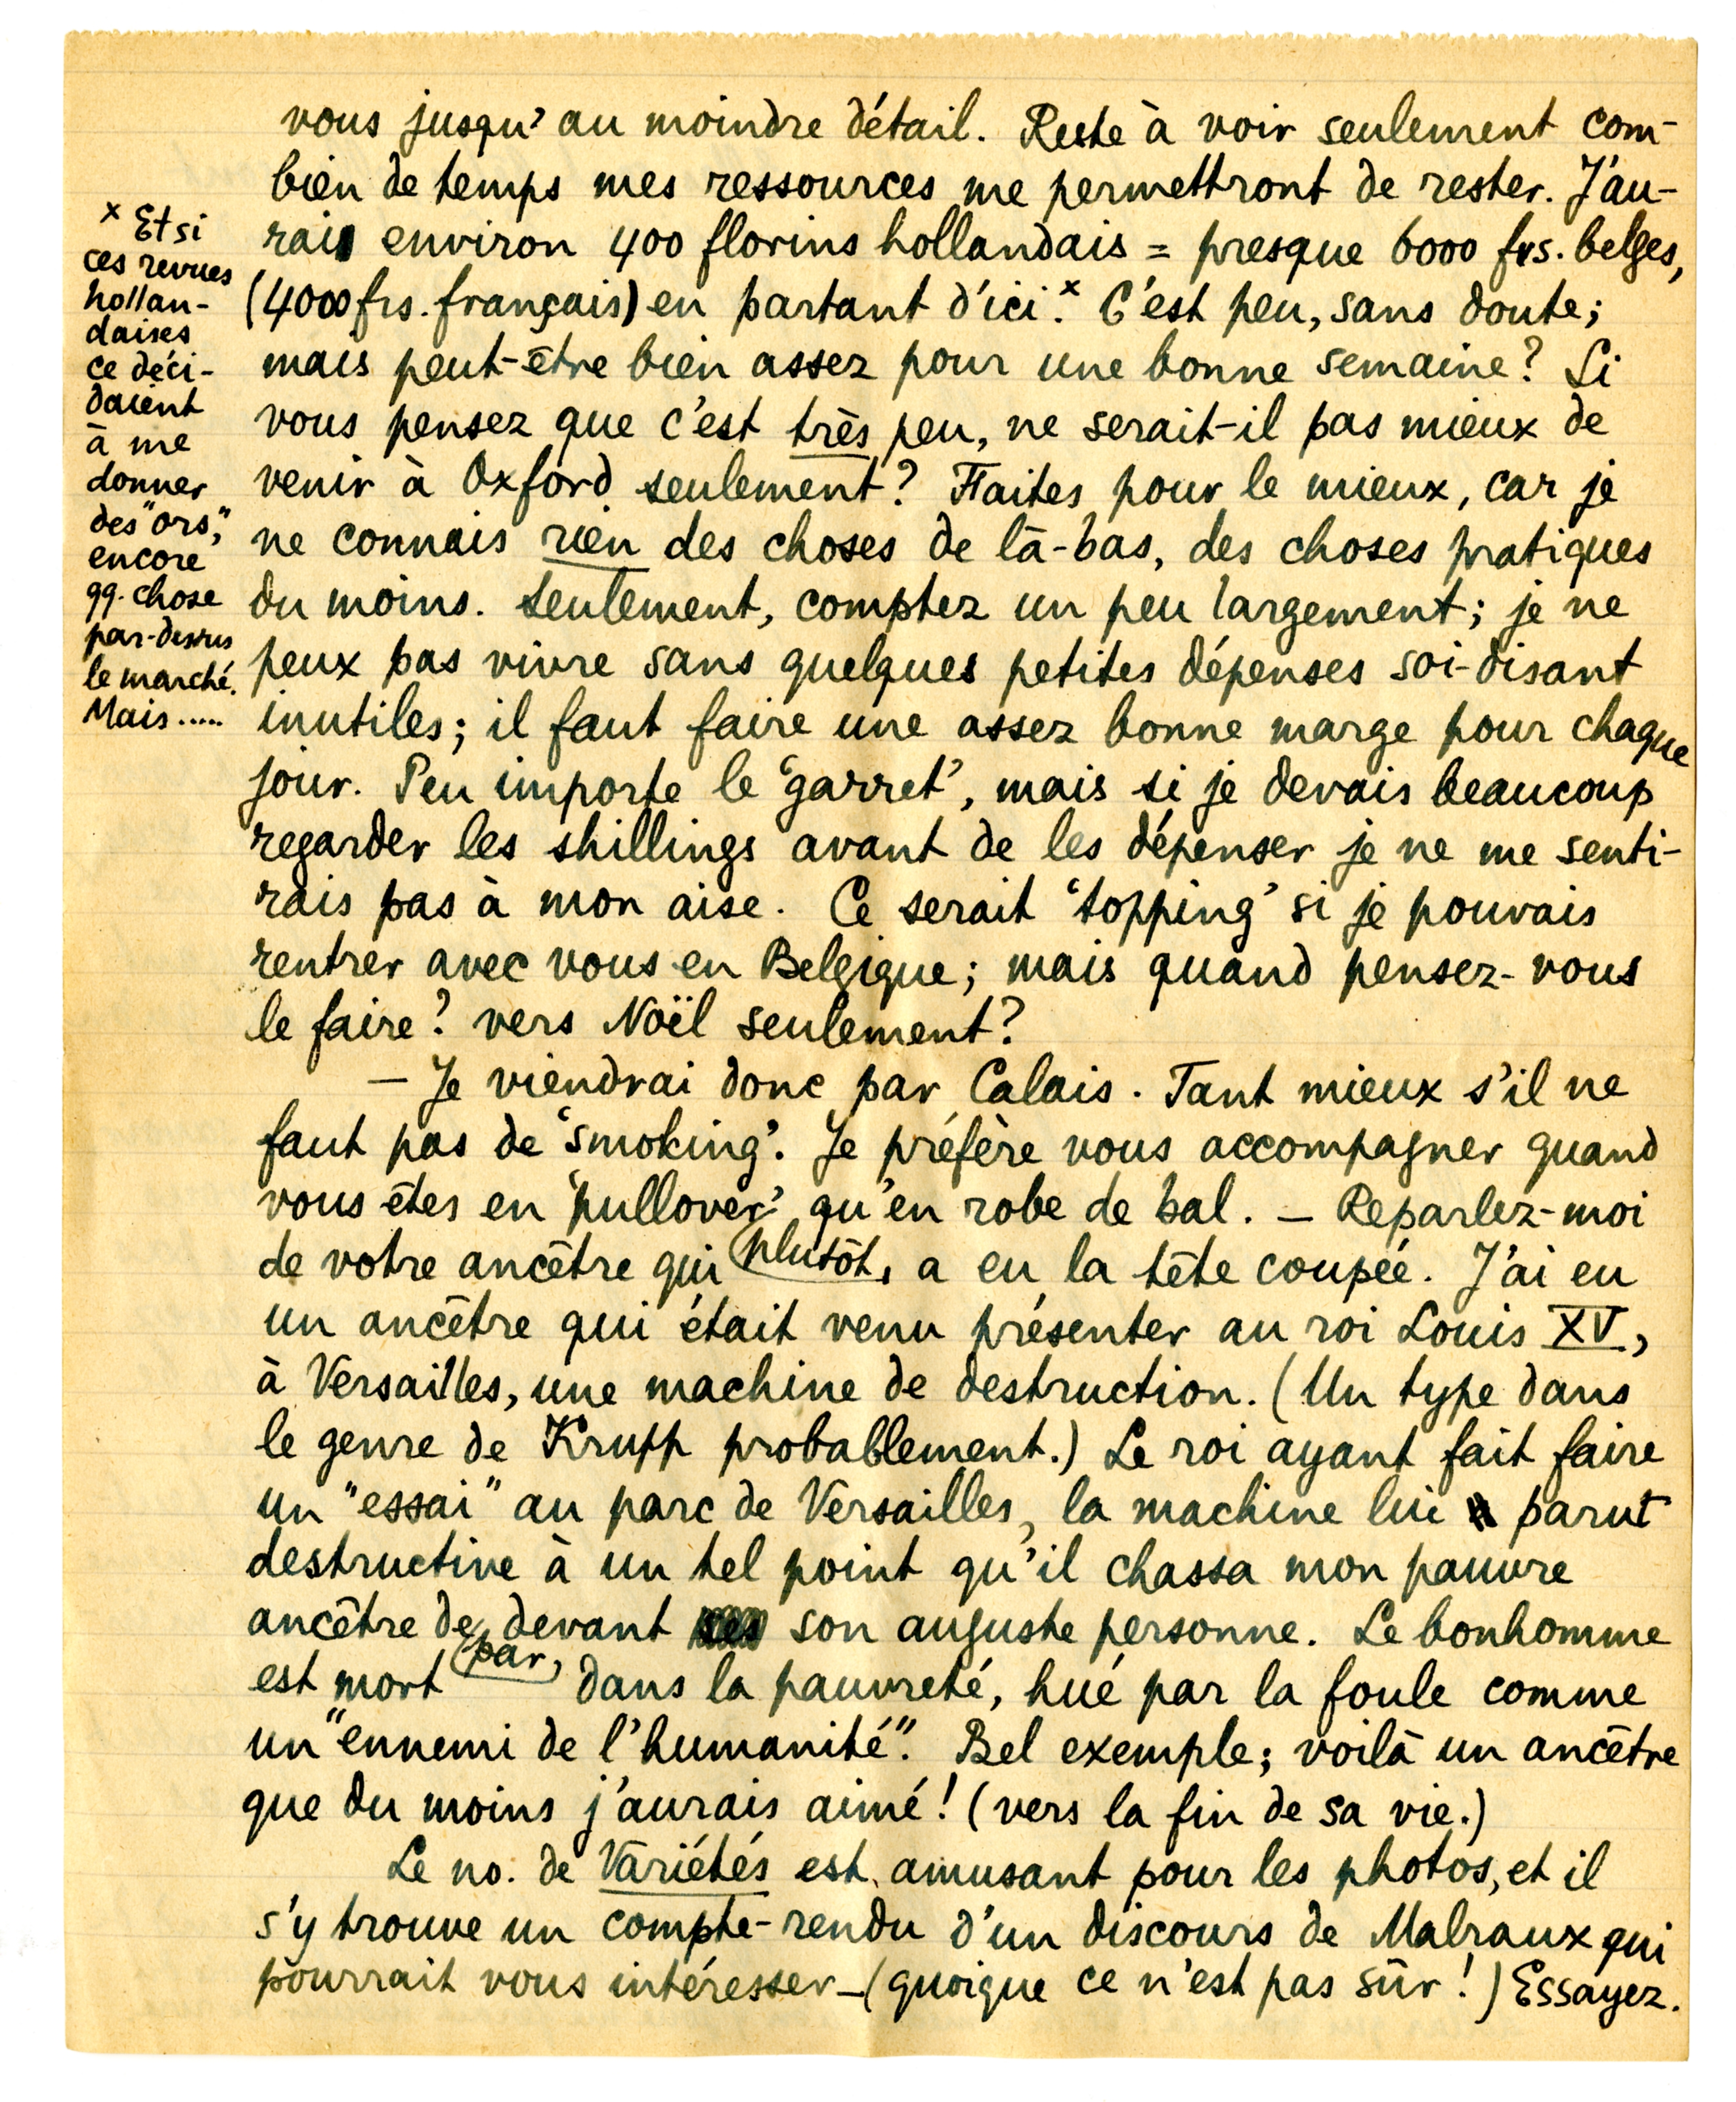 vous jusqu'au moindre détail. Reste à voir seulement com-
bien de temps mes ressources me permettront de rester. J'au-
rais environ 400 florins hollandais = presque 6000 frs. belges,
(4000 frs. français) en partant d'ici.ˣ C'est peu, sans doute;
mais peut-être bien assez pour une bonne semaine? Si
vous pensez que c'est très peu, ne serait-il pas mieux de
venir à Oxford seulement? Faites pour le mieux, car je
ne connais rien des choses de là-bas, des choses pratiques
du moins. Seulement, comptez un peu largement; je ne
peux pas vivre sans quelques petites dépenses soi-disant
inutiles; il faut faire une assez bonne marge pour chaque
jour. Peu importe le 'garret', mais si je devais beaucoup
regarder les shillings avant de les dépenser je ne me senti-
rais pas à mon aise. Ce serait 'topping' si je pouvais
rentrer avec vous en Belgique; mais quand pensez-vous
le faire? vers Noël seulement?
— Je viendrai donc par Calais. Tant mieux s'il ne
faut pas de 'smoking'. Je préfère vous accompagner quand
vous êtes en 'pullover' qu'en robe de bal. — Reparlez-moi
de votre ancêtre qui (plutôt, a eu la tête coupée. J'ai eu
un ancêtre qui était venu présenter au roi Louis XV,
à Versailles, une machine de destruction. (Un type dans
le genre de Krupp probablement.) Le roi ayant fait faire
un "essai" au parc de Versailles, la machine lui parut
destructive à un tel point qu'il chassa mon pauvre
ancêtre de devant son auguste personne. Le bonhomme
est mort (par, dans la pauvreté, hué par la foule comme
un "ennemi de l'humanité". Bel exemple; voilà un ancêtre
que du moins j'aurais aimé! (vers la fin de sa vie.)
Le no. de Variétés est amusant pour les photos, et il
s'y trouve un compte-rendu d'un discours de Malraux qui
pourrait vous intéresser — (quoique ce n'est pas sûr!) Essayez.
ˣ Et si
ces revues
hollan-
daises
ce déci-
daient
à me
donner
des "ors,"
encore
qq. chose
par-dessus
le marché.
Mais.....